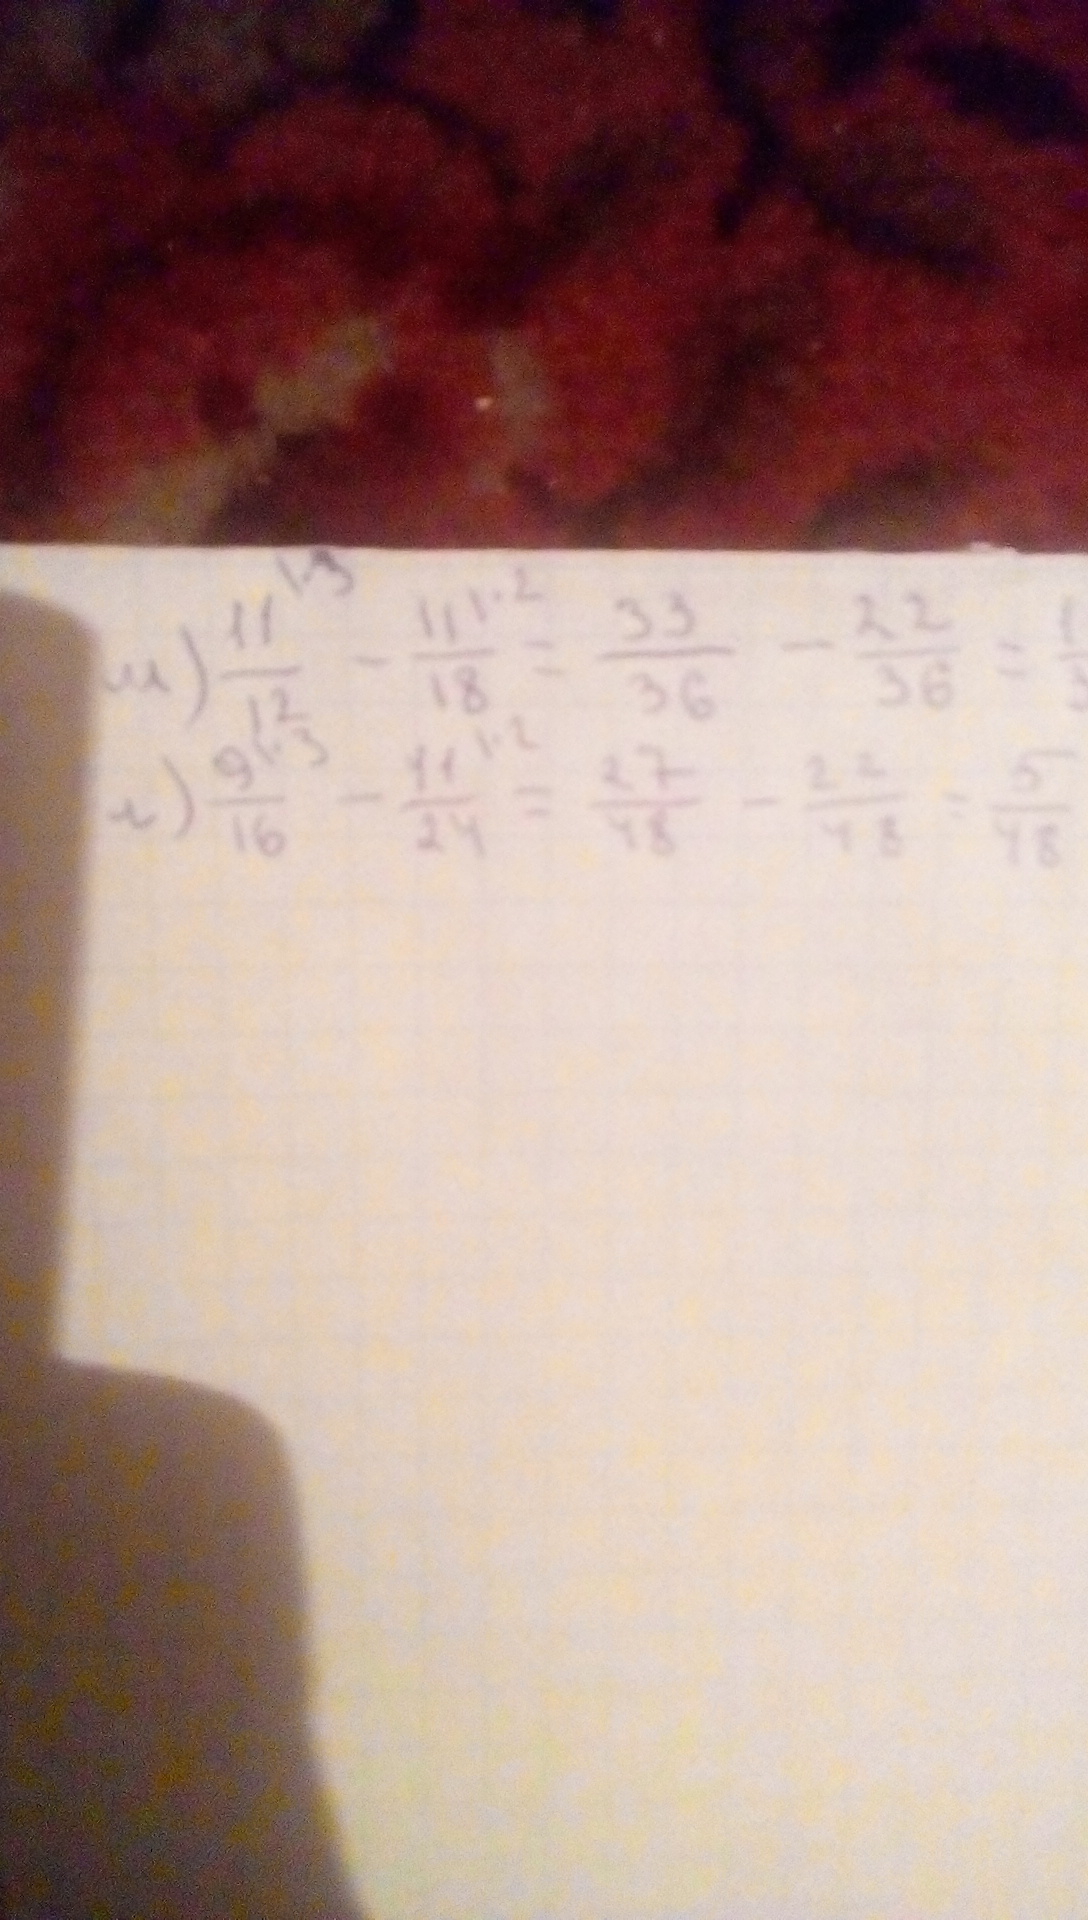 м) 11/12 |·3 - 11/18 |·2 = 33/36 - 22/36 =
л) 9/16 |·3 - 11/24 |·2 = 27/48 - 22/48 = 5/48